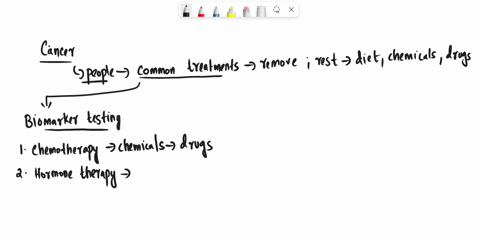 Cancer
↳ people → common treatments → remove ; rest → diet, chemicals, drugs
Biomarker testing
1. Chemotherapy → chemicals → drugs
2. Hormone therapy →